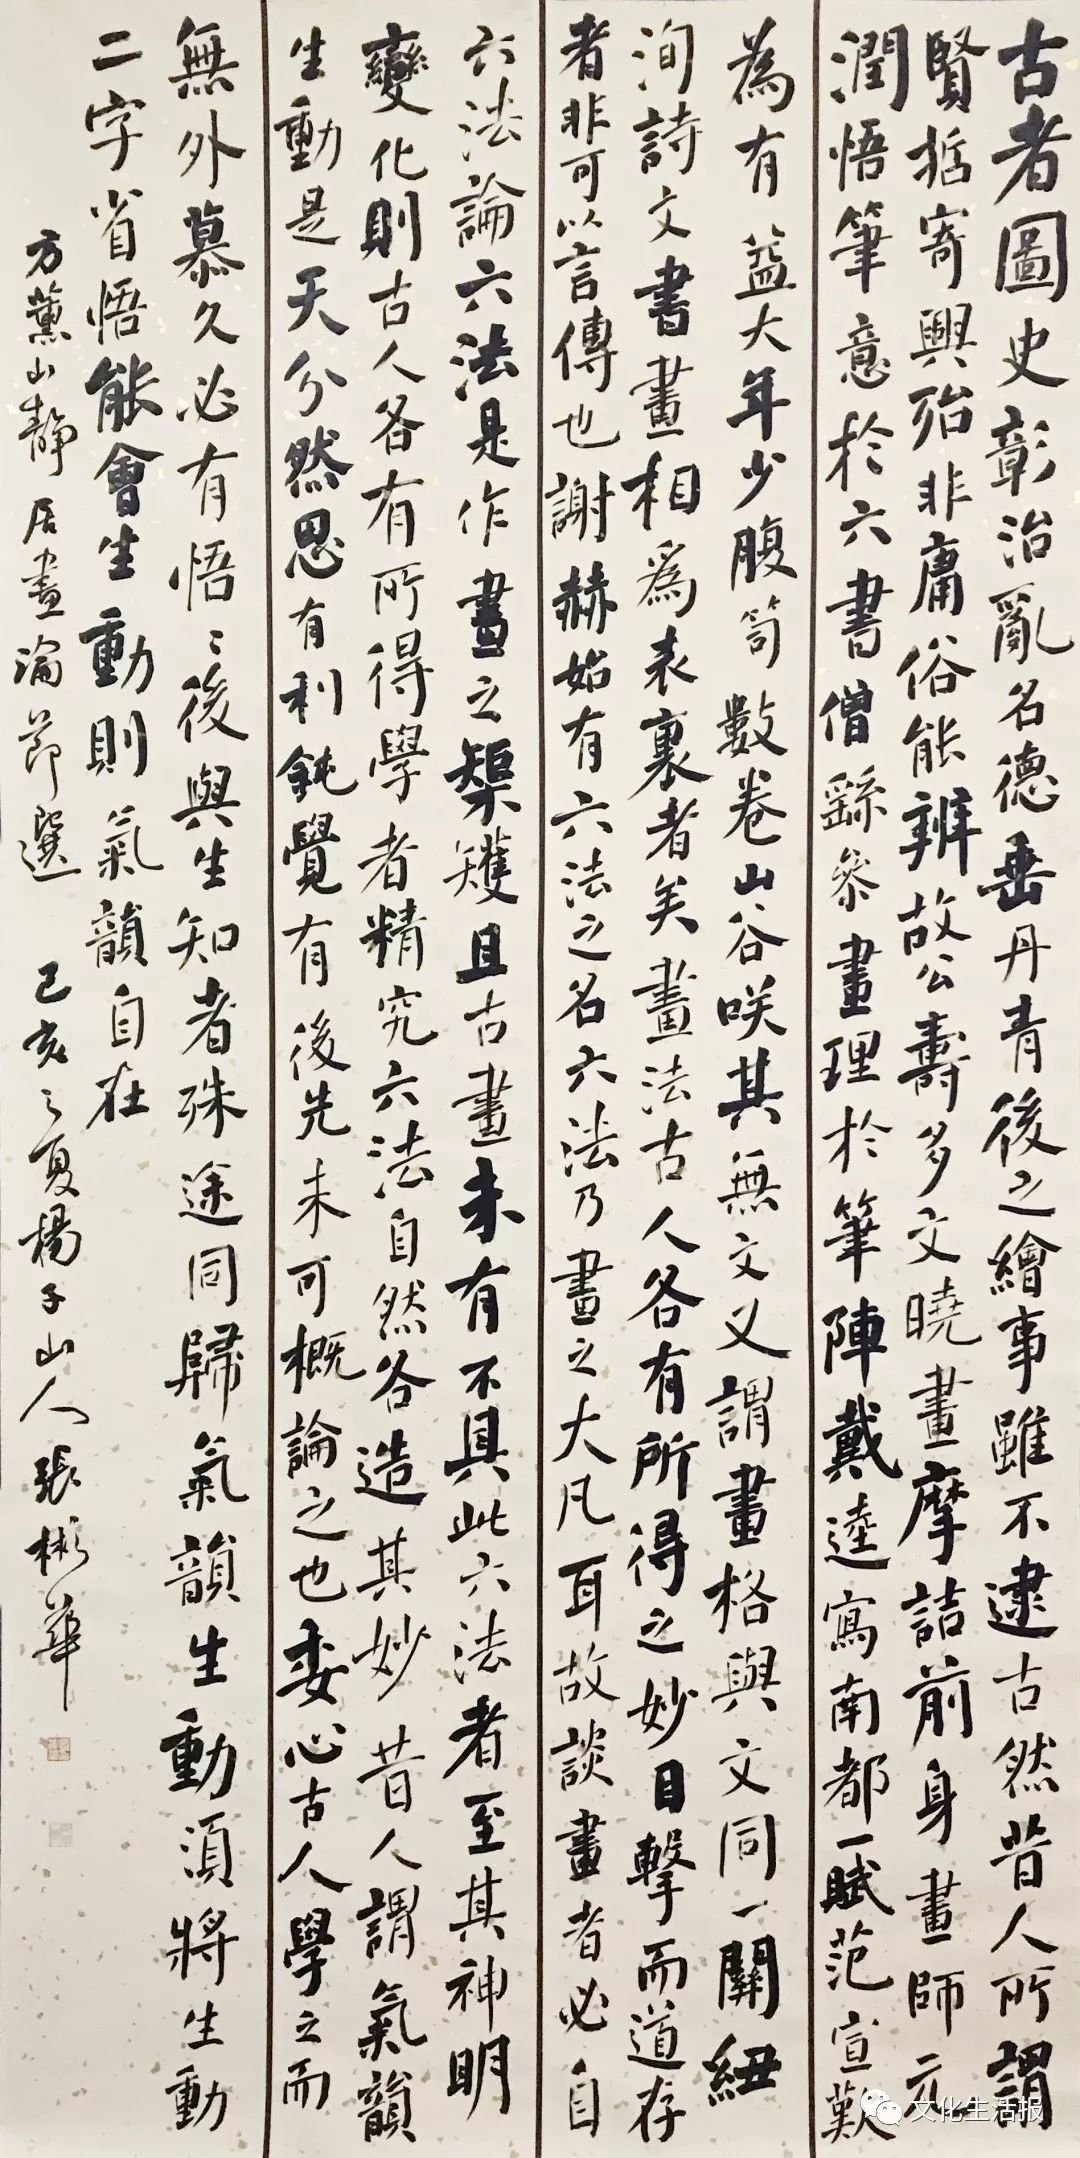 古者圖史彰治亂名德垂丹青後之繪事雖不逮古然昔人所謂
賢哲寄興殆非庸俗能辨故公壽多文曉畫摩詰前身畫師元
潤悟筆意於六書僧繇參畫理於筆陣戴逵寫南都一賦范宣歎
為有益大年少腹笥數卷山谷咲其無文又謂畫格與文同一關紐
洵詩文書畫相爲表裏者矣畫法古人各有所得之妙目擊而道存
者非可以言傳也謝赫始有六法之名六法乃畫之大凡耳故談畫者必自
六法論六法是作畫之榘矱且古畫未有不具此六法者至其神明
變化則古人各有所得學者精究六法自然各造其妙昔人謂氣韻
生動是天分然思有利鈍覺有後先未可概論之也委心古人學之而
無外慕久必有悟〻後與生知者殊途同歸氣韻生動須將生動
二字省悟能會生動則氣韻自在
方薰山靜居畫論節選 己亥之夏楊子山人張彬華
文化生活报